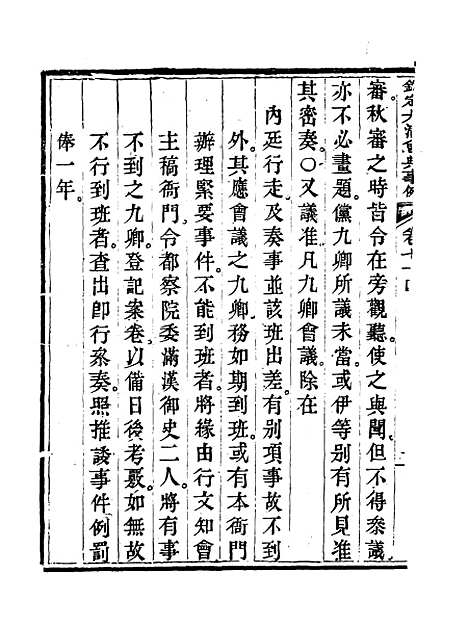 欽定大清會典事例 卷七十四
審秋審之時皆令在旁觀聽。使之與聞。但不得參議。
亦不必畫題。儻九卿所議未當。或伊等別有所見。准
其密奏。○又議准。凡九卿會議。除在
內廷行走。及奏事並該班出差。有別項事故不到
外。其應會議之九卿。務如期到班。或有本衙門
辦理緊要事件。不能到班者。將緣由行文知會
主稿衙門。令都察院委滿漢御史二人。將有事
不到之九卿登記案卷。以備日後考覈。如無故
不行到班者。查出卽行參奏。照推諉事件例罰
俸一年。